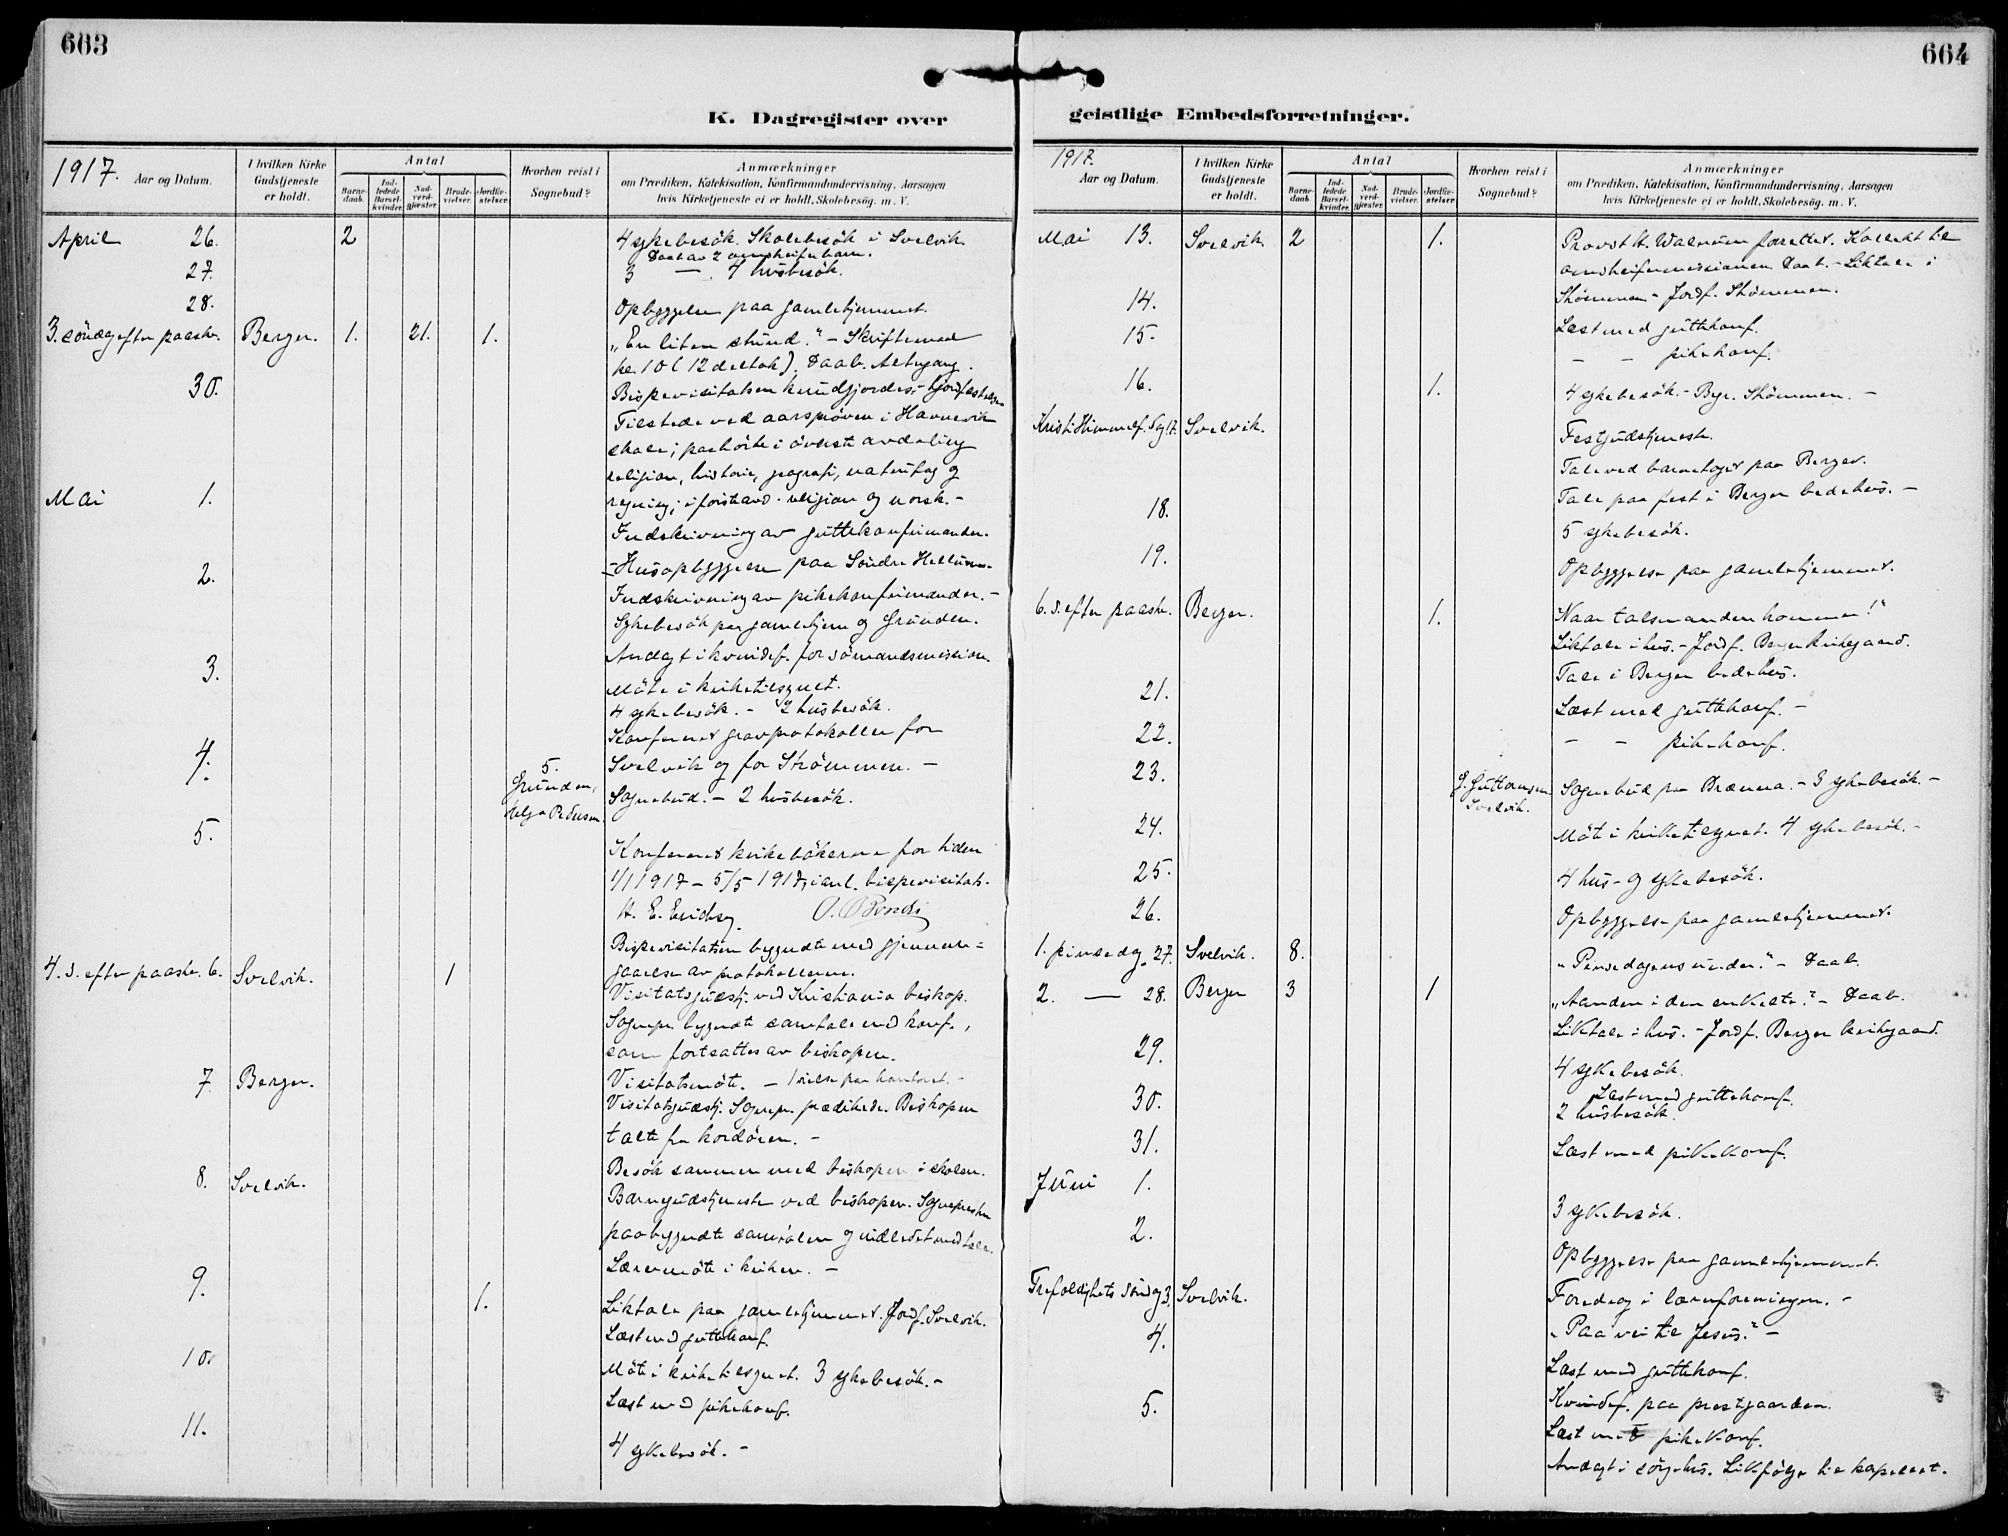 663
K. Dagregister over
1917. Aar og Datum.
I hvilken Kirke Gudstjeneste er holdt.
Antal
Barne-daab.
Ind-ledede Barsel-kvinder.
Nad-verd-gjæster.
Brude-vielser.
Jordfæ-stelser.
Hvorhen reist i Sognebud?
Anmærkninger
om Prædiken, Katekisation, Konfirmandundervisning, Aarsagen
hvis Kirketjeneste ei er holdt, Skolebesøg. m. V.
April 26. 2 4 sykebesök. Skolebesök i Svelvik.
Daab av 2 barn.
27. 3 — 7 husbesök.
28. Opbyggelse paa gamlehjemmet.
3. söndag efter paaske. Berger. 1. 21. 1. "En liten stund." – Skriftemaal
kl. 10 (12 deltok). Daab. Altergang.
30. Bispevisitatsen kundgjordes. – Jordfæstelse
Tilstede ved aarsprøven i Havnevik
skole; paahörte i överste avdeling
religion, historie, geografi, naturfag og
Mai 1. regning; i forstand. religion og norsk. –
Indskrivning av guttekonfirmander.
2. – Husopbyggelse paa Söndre Hellum
Indskrivning av pikekonfirmander. –
Sykebesök paa gamlehjem og Grunden.
Andagt i kvindef. for sömandsmission.
3. Möte i kirketilsynet.
4 sykebesök. – 2 husbesök.
Konferert gravprotokoller for
4. Svelvik og for Strömmen. –
5. Grunden, Helga Pedersen. Sognebud. – 2 husbesök.
5. Konferert kirkebökerne for tiden
1/1 1917 – 5/5 1917, i anl. bispevisitats.
Bispevisitatsen begyndte med gjennem=
4. s. efter paaske. 6. Svelvik. 1 gaaelse av protokollerne.
Visitatsgudstj. ved Kristiania biskop.
Sognepr. begyndte samtale med konf.,
som fortsattes av biskopen.
7. Berger. Visitatsmöte. – 1 vielse paa kontoret. –
Visitatsgudstj. Sognepr. prædikede. Biskopen
talte fra kordören. –
8. Svelvik. Besök sammen med biskopen i skolen.
Barnegudstjeneste ved biskopen. Sognepresten
paabegyndte samtalen og indledet med tale.
9. Lærermöte i kirken. –
1. Liktale paa gamlehjemmet. Jordf. Svelvik.
Læst med guttekonf.
10. Möte i kirketilsynet. 3 sykebesök. –
Læst med pikekonf.
11. 4 sykebesök. –
664
geistlige Embedsforretninger.
1917.
Aar og Datum.
I hvilken Kirke Gudstjeneste er holdt.
Antal
Barne-daab.
Ind-ledede Barsel-kvinder.
Nad-verd-gjæster.
Brude-vielser.
Jordfæ-stelser.
Hvorhen reist i Sognebud?
Anmærkninger
om Prædiken, Katekisation, Konfirmandundervisning, Aarsagen
hvis Kirketjeneste ei er holdt, Skolebesøg. m. V.
Mai 13. Svelvik. 2 1. Provst H. Walnum forrettet. Kollekt til
Daab. – Liktale i
14. Strömmen – Jordf. Strömmen.
15. Læst med guttekonf.
– – pikekonf.
16. 1. 4 sykebesök. – Begr. Strömmen. –
Kristi Himmelf. og 17. Svelvik. Festgudstjeneste.
Tale ved barnetoget paa Berger.
Tale paa fest i Berger bedehus. –
18. 5 sykebesök.
19. Opbyggelse paa gamlehjemmet.
6. s. efter paaske. Berger. 1. "Naar talsmanden kommer!"
Liktale i hus. – Jordf. Berger kirkegaard.
Tale i Berger bedehus.
21. Læst med guttekonf. –
22. – – pikekonf.
23. G. Guttormsen Svelvik. Sognebud paa Brænna. – 3 sykebesök. –
24. Möte i kirketilsynet. 4 sykebesök. –
25. 4 hus- og sykebesök.
26. Opbyggelse paa gamlehjemmet.
1. pinsedag. 27. Svelvik. 8. "Pinsedagens under." – Daab.
2. — 28. Berger 3 1 "Aanden i den enkelte." – Daab.
Liktale i hus. – Jordf. Berger kirkegaard.
29. 4 sykebesök.
Læst med guttekonf.
30. 2 husbesök.
31. Læst med pikekonf.
Juni 1. 3 sykebesök.
2. Opbyggelse paa gamlehjemmet.
Trefoldighets söndag 3. Svelvik. Foredrag i lærerforeningen. –
4. "Paa vei til Jesus." –
Læst med guttekonf.
5. Kvindef. paa prestgaarden.
Læst med pikekonf.
Andagt i sörgehus. Likfölge til kapellet.